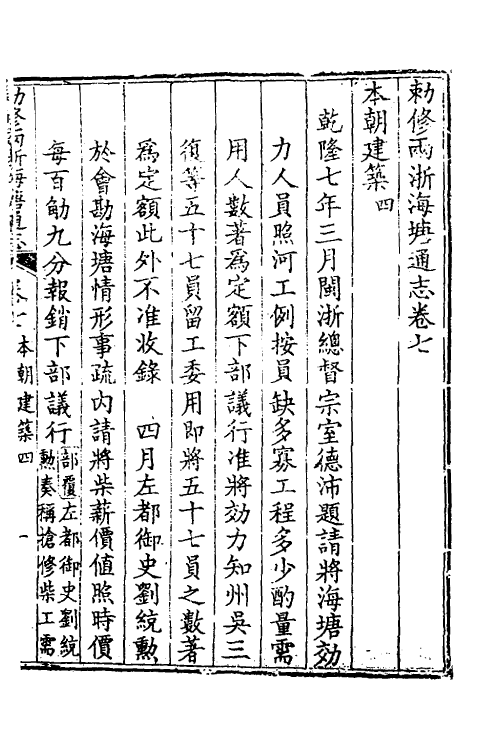 勅修兩浙海塘通志卷七
本朝建築四
乾隆七年三月閩浙總督宗室德沛題請將海塘効
力人員照河工例按員缺多寡工程多少酌量需
用人數著爲定額下部議行准將効力知州吳三
復等五十七員留工委用即將五十七員之數著
爲定額此外不准收錄　四月左都御史劉統勲
於會勘海塘情形事疏内請將柴薪價值照時價
每百觔九分報銷下部議行部覆左都御史劉統
勲奏稱搶修柴工需
勅修兩浙海塘通志　卷七　本朝建築四　一